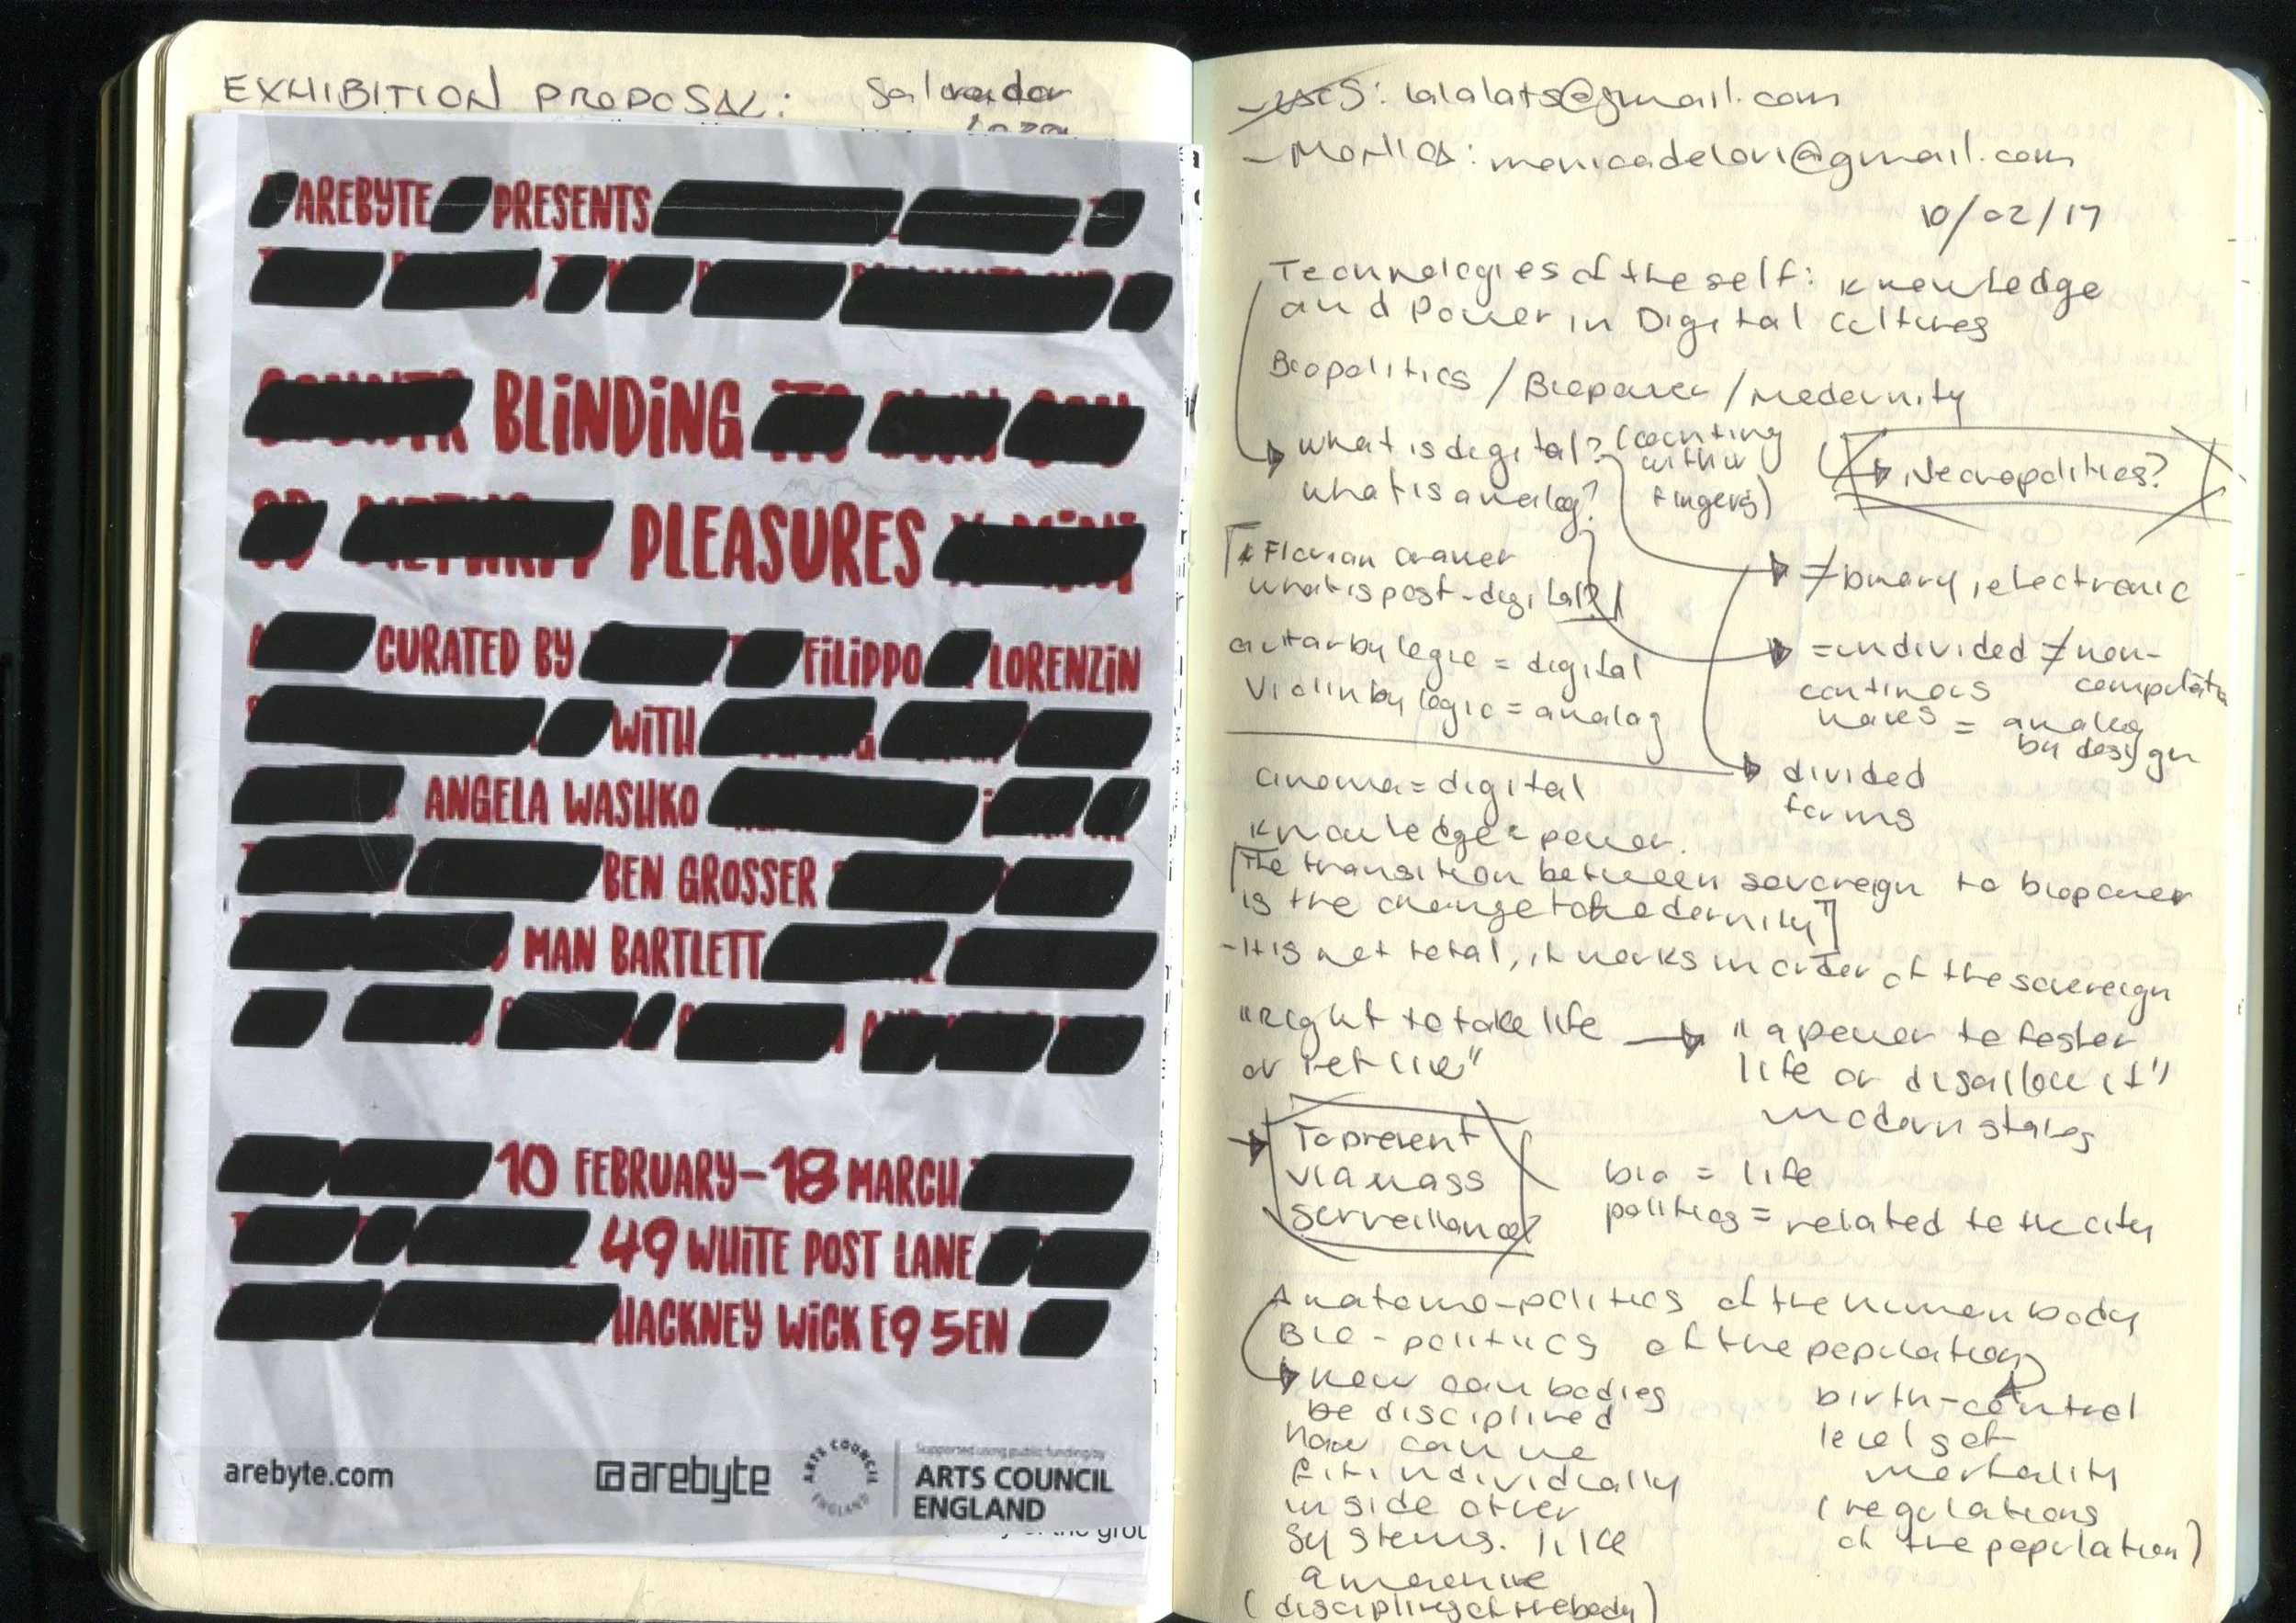 EXHIBITION PROPOSAL: Salvador
AREBYTE PRESENTS
BLINDING
PLEASURES
CURATED BY FILIPPO LORENZIN
WITH
ANGELA WASHKO
BEN GROSSER
MAN BARTLETT
10 FEBRUARY-18 MARCH
49 WHITE POST LANE
HACKNEY WICK E9 5EN
arebyte.com
arebyte
ARTS COUNCIL ENGLAND
Supported using public funding by
ARTS COUNCIL
ENGLAND
: lalalats@gmail.com
- : monicadelori@gmail.com
10/02/17
Technologies of the self: knowledge
and Power in Digital Cultures
Biopolitics / Biopower / Modernity
what is digital? (counting
within
fingers)
what is analog?
Necropolitics?
Florian Cramer
what is post-digital?
≠ binary, electronic
guitar by logic = digital
Violin by logic = analog
= undivided ≠ non-
continous
waves = analog
by design
cinema = digital
divided
forms
knowledge = power.
[The transition between sovereign to biopower
is the change to modernity"]
- It is not total, it works in order of the sovereign
"right to take life
or let live"
"a power to foster
life or disallow it"
modern states
To prevent
via mass
serveillance?
bio = life
politics = related to the city
Anatomo-politics of the human body
Bio-politics of the population
how can bodies
be disciplined
how can we
fit individually
inside other
systems. like
a machine
(disciplines of the body)
birth-control
level of
mortality
(regulations
of the population)